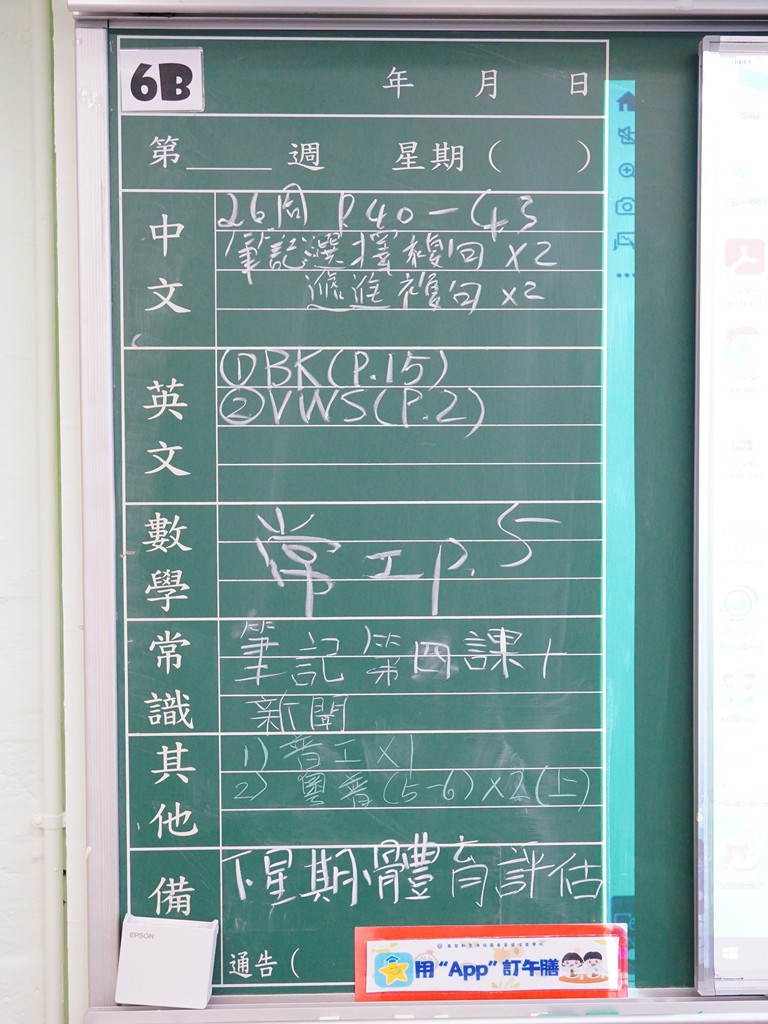 6B
年 月 日
第____週 星期( )
中文
26周 P.40-43
筆記選擇複句 x2
遞進複句 x2
英文
①BK(P.15)
②VWS(P.2)
數學
常工p.5
常識
筆記第四課+
新聞
其他
1) 普工x1
2) 粵普(5-6)x2(上)
備
下星期體育評估
EPSON
通告(
用“App”訂午膳